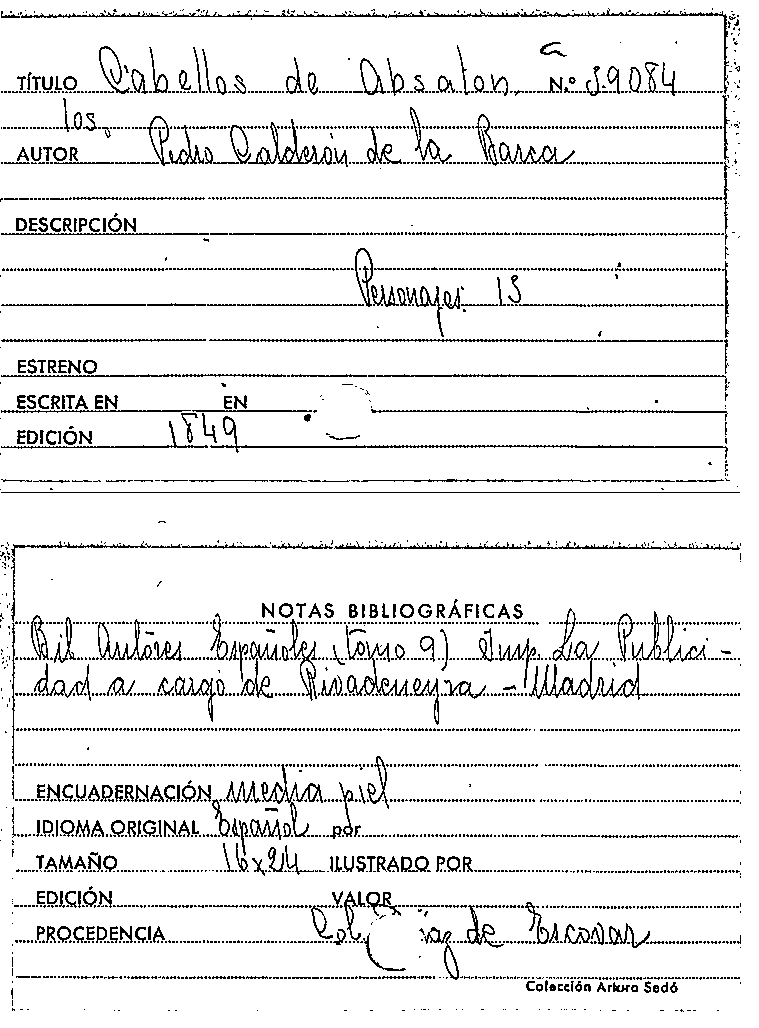 TÍTULO Cabellos de Absalon. N.º 59084
los.
AUTOR Pedro Calderón de la Barca
DESCRIPCIÓN
Personajes: 15
ESTRENO
ESCRITA EN EN
EDICIÓN 1849
NOTAS BIBLIOGRÁFICAS
Bil Autores Españoles (tomo 9) Imp. La Publici-
dad a cargo de Rivadeneyra - Madrid
ENCUADERNACIÓN media piel
IDIOMA ORIGINAL Español por
TAMAÑO 16x24 ILUSTRADO POR
EDICIÓN VALOR
PROCEDENCIA Col. de Escovar
Colección Arturo Sedó